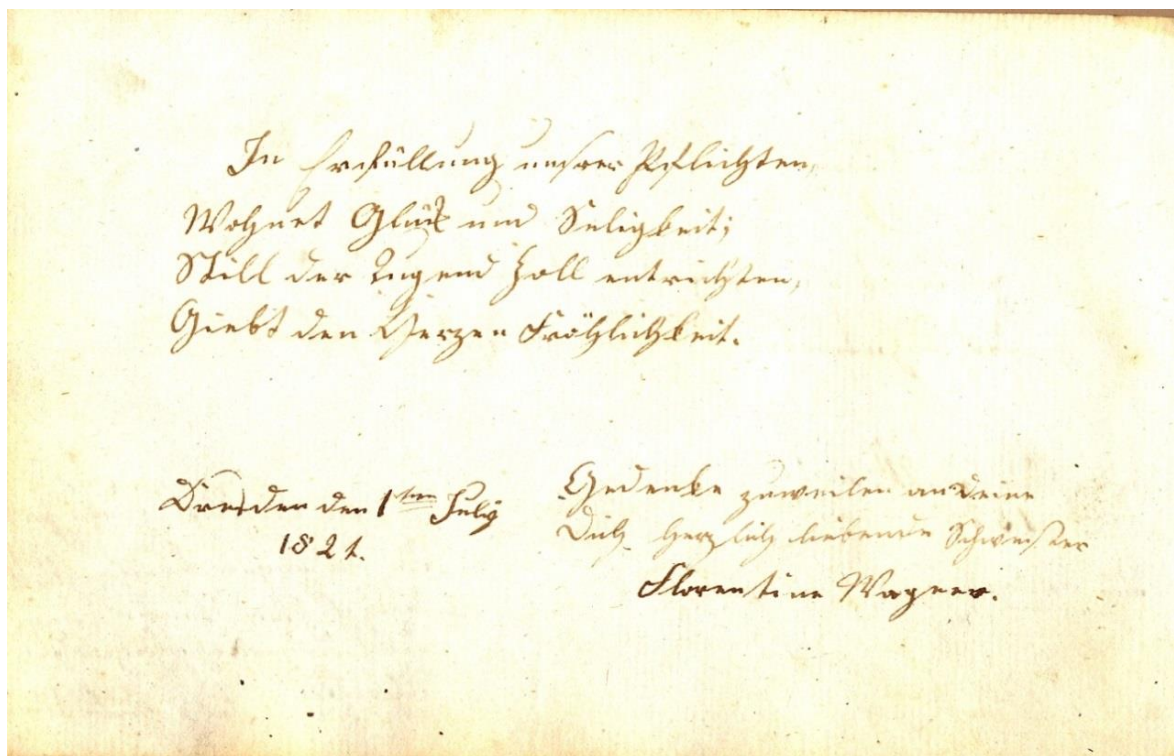 In Erfüllung unsrer Pflichten,
Wohnet Glück und Seligkeit;
Still der Tugend Zoll entrichten,
Giebt den Herzen Fröhlichkeit.
Dresden den 1ten July
1821.
Gedenke zuweilen an Deine
Dich herzlich liebende Schwester
Florentine Wagner.